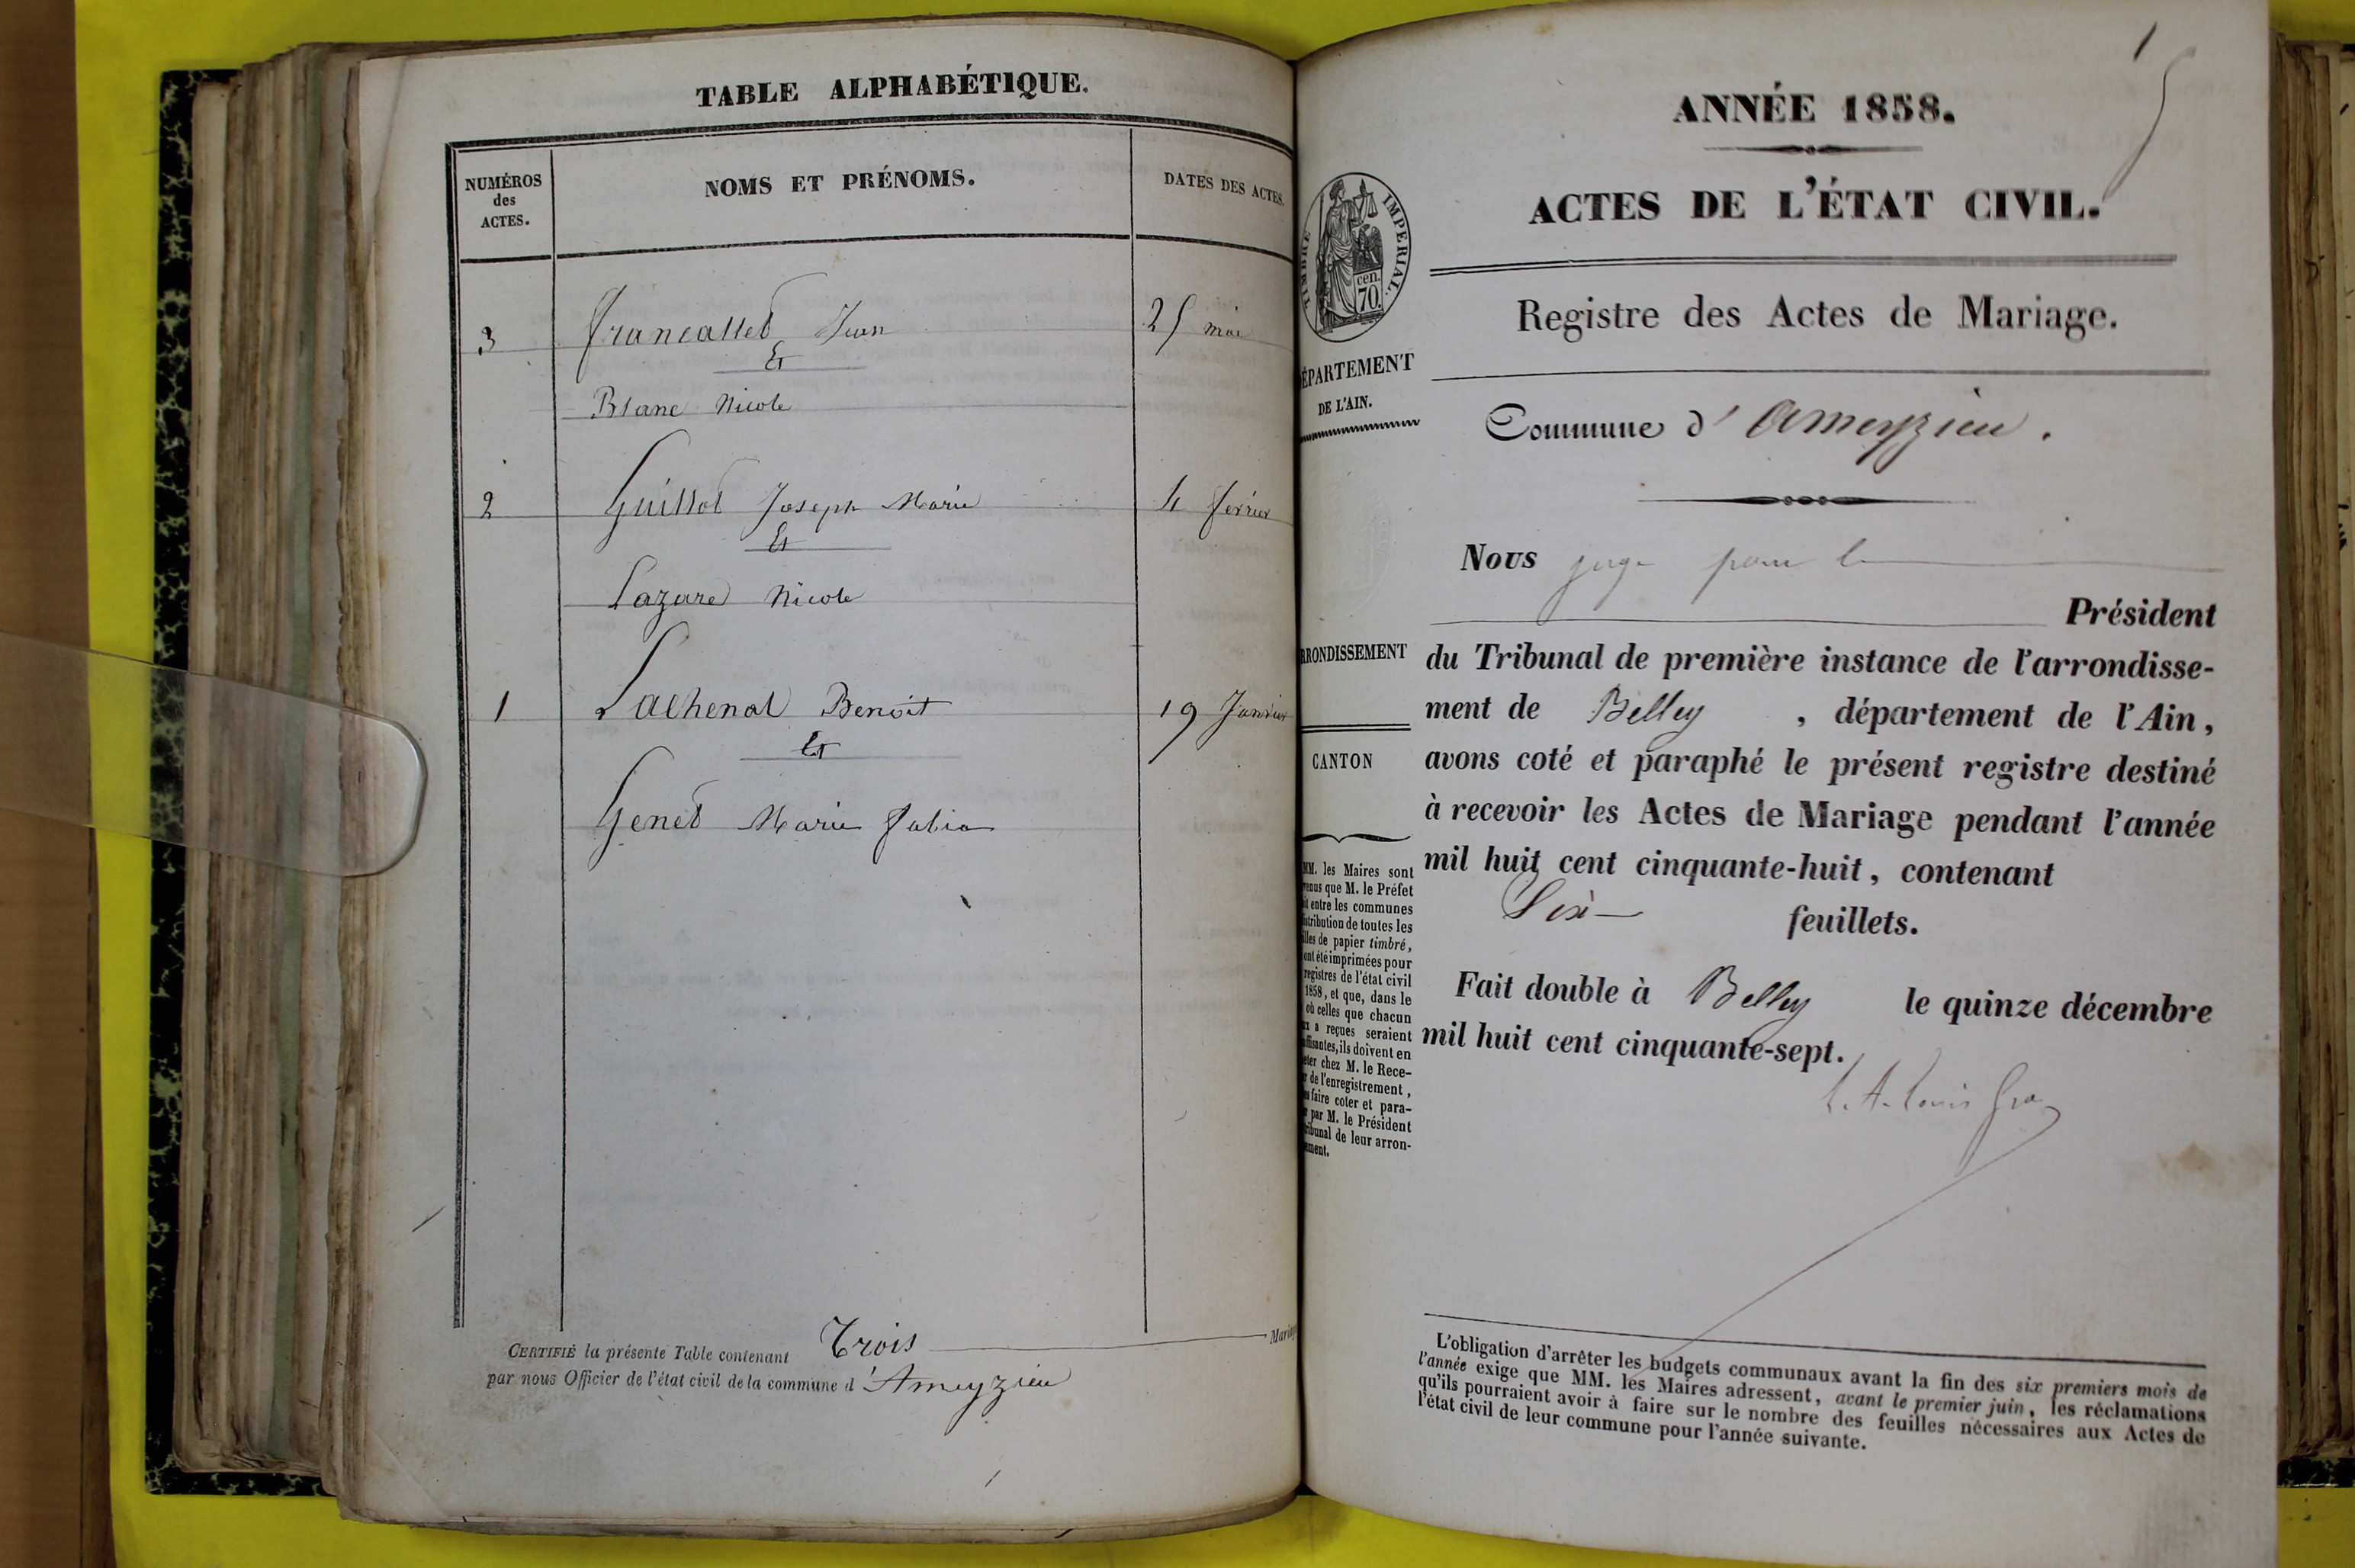 TABLE ALPHABÉTIQUE.
NUMÉROS
des
ACTES.
NOMS ET PRÉNOMS.
DATES DES ACTES.
3 Francallet Jean 25 mai
Et
Blanc Nicole
2 Guillot Joseph Marie 4 février
Et
Lazare Nicole
1 Lachenal Benoit 19 Janvier
Et
Genet Marie
CERTIFIÉ la présente Table contenant Trois
par nous Officier de l'état civil de la commune d'Ameyzieu
ANNÉE 1858.
ACTES DE L'ÉTAT CIVIL.
TIMBRE IMPERIAL.
cen.
70.
Registre des Actes de Mariage.
DÉPARTEMENT
DE L'AIN.
Commune d'Ameyzieu.
Nous juge pour le
Président
ARRONDISSEMENT
du Tribunal de première instance de l'arrondisse-
ment de Belley, département de l'Ain,
CANTON
avons coté et paraphé le présent registre destiné
à recevoir les Actes de Mariage pendant l'année
mil huit cent cinquante-huit, contenant
Six feuillets.
Fait double à Belley le quinze décembre
mil huit cent cinquante-sept.
MM. les Maires sont
venus que M. le Préfet
it entre les communes
stribution de toutes les
lles de papier timbré,
ont été imprimées pour
registres de l'état civil
1858, et que, dans le
où celles que chacun
ux a reçues seraient
ffisantes, ils doivent en
eter chez M. le Rece-
r de l'enregistrement,
es faire coter et para-
r par M. le Président
ribunal de leur arron-
ement.
L'obligation d'arrêter les budgets communaux avant la fin des six premiers mois de
l'année exige que MM. les Maires adressent, avant le premier juin, les réclamations
qu'ils pourraient avoir à faire sur le nombre des feuilles nécessaires aux Actes de
l'état civil de leur commune pour l'année suivante.